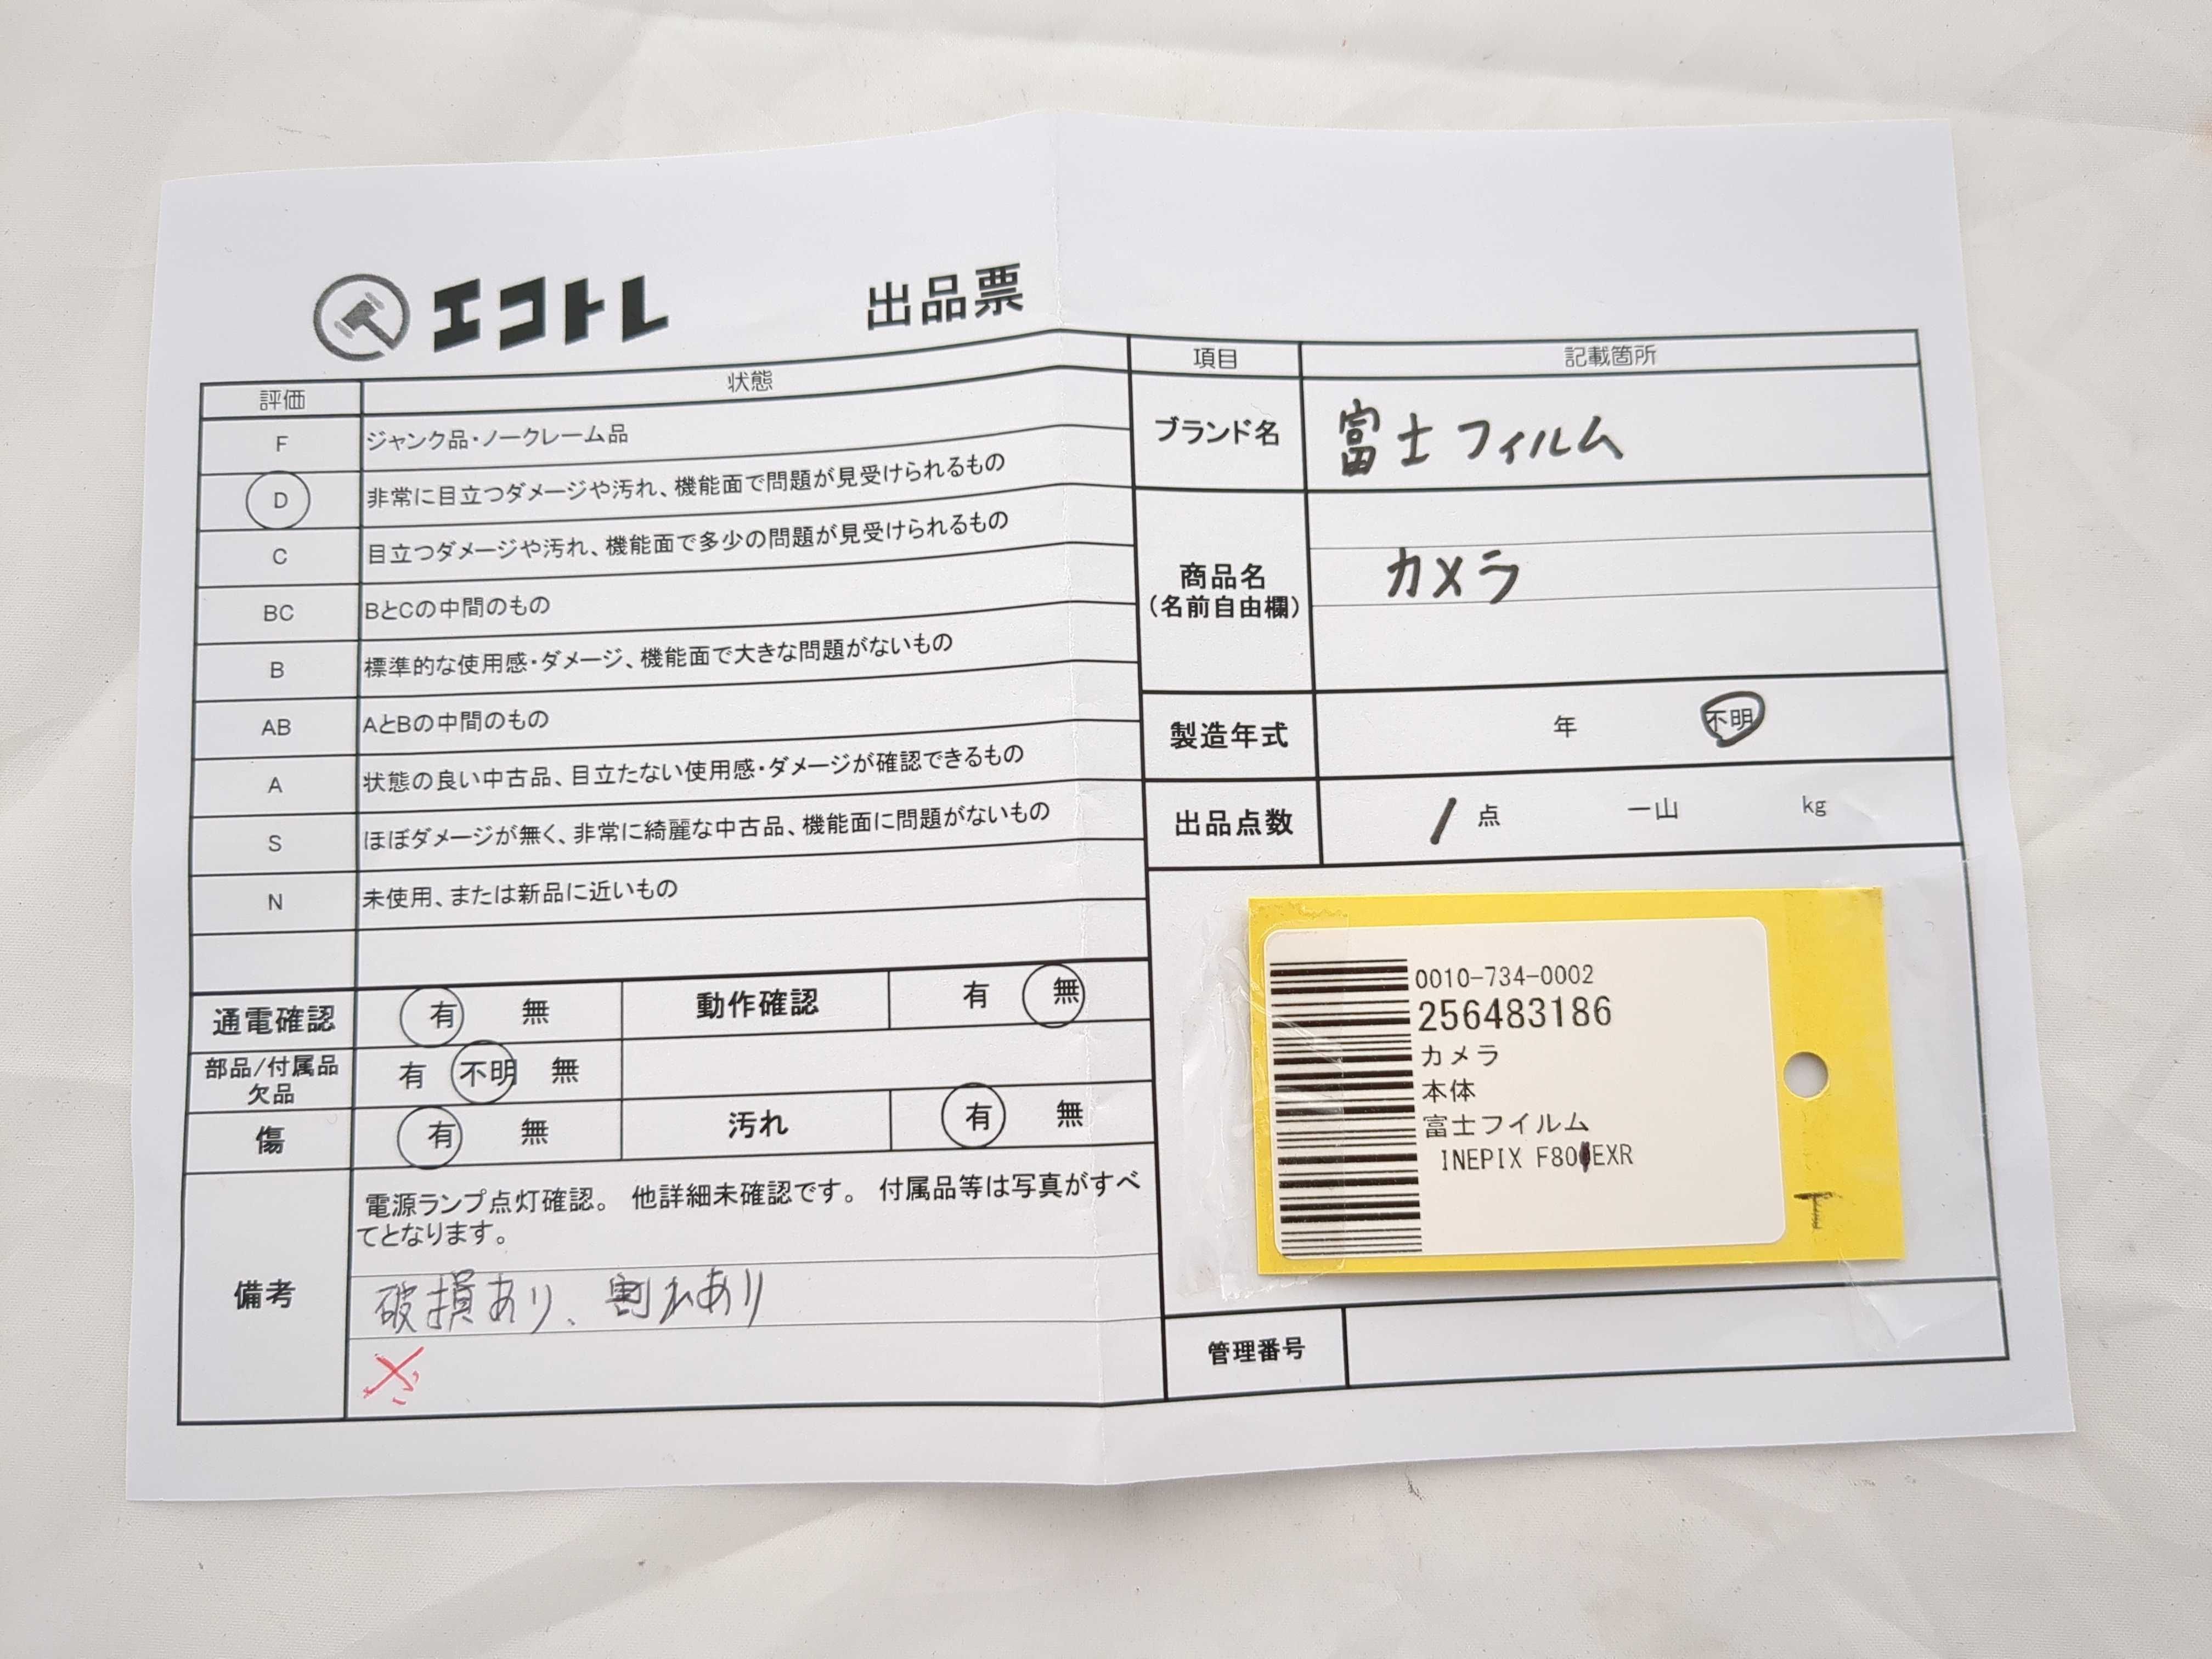 エコトレ
出品票
評価 状態
F ジャンク品・ノークレーム品
D 非常に目立つダメージや汚れ、機能面で問題が見受けられるもの
C 目立つダメージや汚れ、機能面で多少の問題が見受けられるもの
BC BとCの中間のもの
B 標準的な使用感・ダメージ、機能面で大きな問題がないもの
AB AとBの中間のもの
A 状態の良い中古品、目立たない使用感・ダメージが確認できるもの
S ほぼダメージが無く、非常に綺麗な中古品、機能面に問題がないもの
N 未使用、または新品に近いもの
通電確認 有 無 動作確認 有 無
部品/付属品
欠品 有 不明 無
傷 有 無 汚れ 有 無
備考
電源ランプ点灯確認。 他詳細未確認です。 付属品等は写真がすべ
てとなります。
破損あり、割れあり
項目 記載箇所
ブランド名 富士フィルム
商品名
(名前自由欄)
カメラ
製造年式 年 不明
出品点数 1 点 一山 kg
0010-734-0002
256483186
カメラ
本体
富士フイルム
INEPIX F80 EXR
T
管理番号